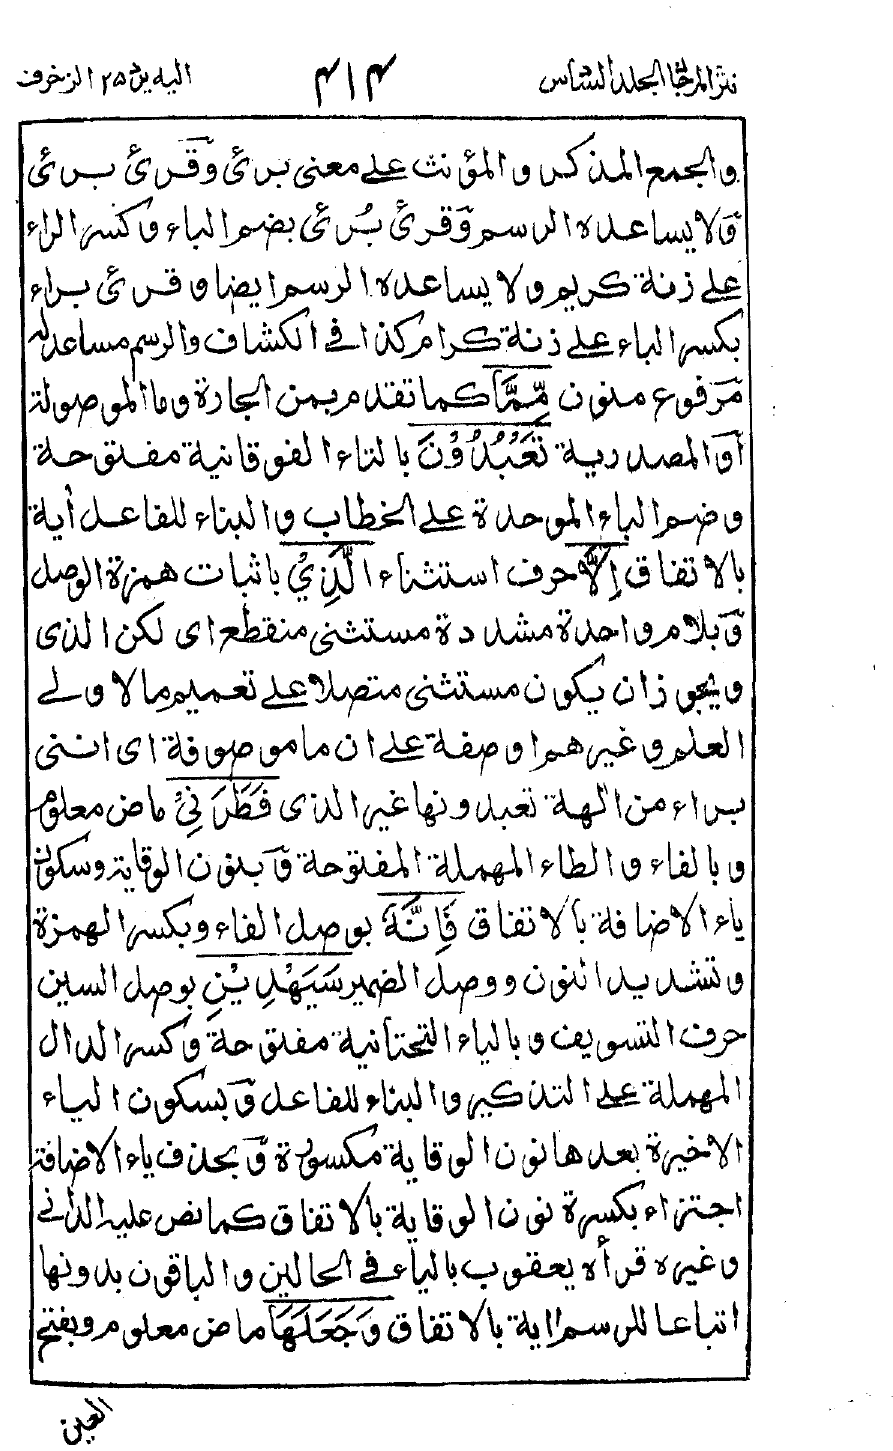 نثر المرجان الجلد السادس ۴۱۴ اليه يرد ۲۵ الزخرف
والجمع المذكر والمؤنث على معنى برئ وقرئ برئ
ولا يساعده الرسم وقرئ بُرئ بضم الباء وكسر الراء
على زنة كريم ولا يساعده الرسم ايضا وقرئ براء
بكسر الباء على زنة كرام كذا في الكشاف والرسم مساعد له
مرفوع منون مِّمَّا كما تقدم بمن الجارة وما الموصولة
او المصدرية تَعْبُدُوْنَ بالتاء الفوقانية مفتوحة
وضم الباء الموحدة على الخطاب والبناء للفاعل أية
بالاتفاق اِلَّا حرف استثناء الَّذِيْ باثبات همزة الوصل
وبلام واحدة مشددة مستثنى منقطع اى لكن الذى
ويجوز ان يكون مستثنى متصلا على تعميم ما لاولے
العلم وغيرهم او صفة على ان ما موصوفة اى اننى
براء من الهة تعبدونها غير الذى فَطَرَنِيْ ماض معلوم
وبالفاء والطاء المهملة المفتوحة وبنون الوقاية وسكون
ياء الاضافة بالاتفاق فَاِنَّهٗ بوصل الفاء وبكسر الهمزة
وتشديد النون ووصل الضمير سَيَهْدِيْنِ بوصل السين
حرف التسويف وبالياء التحتانية مفتوحة وكسر الدال
المهملة على التذكير والبناء للفاعل وبسكون الياء
الاخيرة بعدها نون الوقاية مكسورة وبحذف ياء الاضافة
اجتزاء بكسرة نون الوقاية بالاتفاق كما نص عليه الدانے
وغيره قرأه يعقوب بالياء في الحالين والباقون بدونها
اتباعا للرسم اية بالاتفاق وَجَعَلَهَا ماض معلوم وبفتح
العين